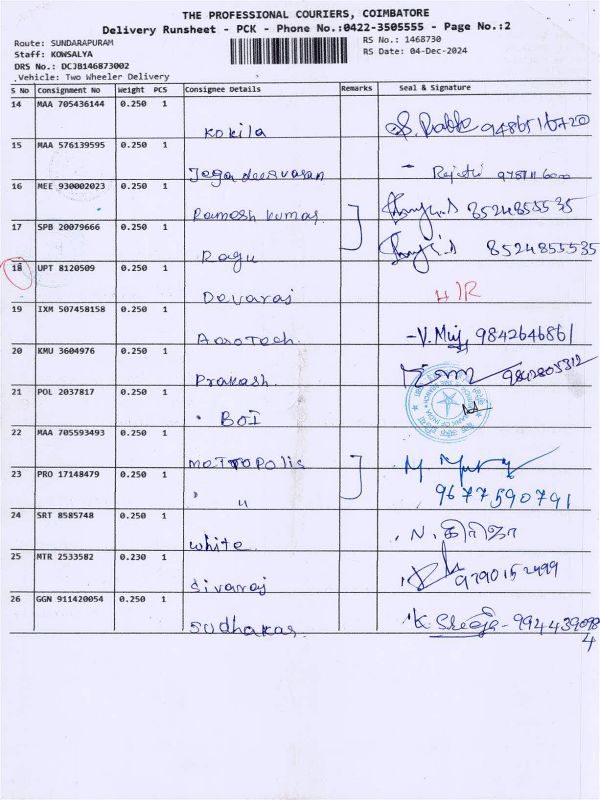 THE PROFESSIONAL COURIERS, COIMBATORE
Delivery Runsheet - PCK - Phone No.:0422-3505555 - Page No.:2
Route: SUNDARAPURAM
RS No.: 1468730
Staff: KOWSALYA
RS Date: 04-Dec-2024
DRS No.: DCJB146873002
Vehicle: Two Wheeler Delivery
S No Consignment No Weight PCS Consignee Details Remarks Seal & Signature
14 MAA 705436144 0.250 1
Kokila 9486516720
15 MAA 576139595 0.250 1
Jagadeesvaran
16 MEE 930002023 0.250 1
Ramesh Kumar 8524855535
17 SPB 20079666 0.250 1
Ragu 8524855535
18 UPT 8120509 0.250 1
Devaraj
19 IXM 507458158 0.250 1
AeroTech. 9842646861
20 KMU 3604976 0.250 1
Prakash. 9842805312
21 POL 2037817 0.250 1
BOI
22 MAA 705593493 0.250 1
metropolis
23 PRO 17148479 0.250 1
" 9677590791
24 SRT 8585748 0.250 1
white N. கிரிஜா
25 MTR 2533582 0.230 1
Sivaraj 9790152499
26 GGN 911420054 0.250 1
Sudhakar K. Sreeja - 9944390984